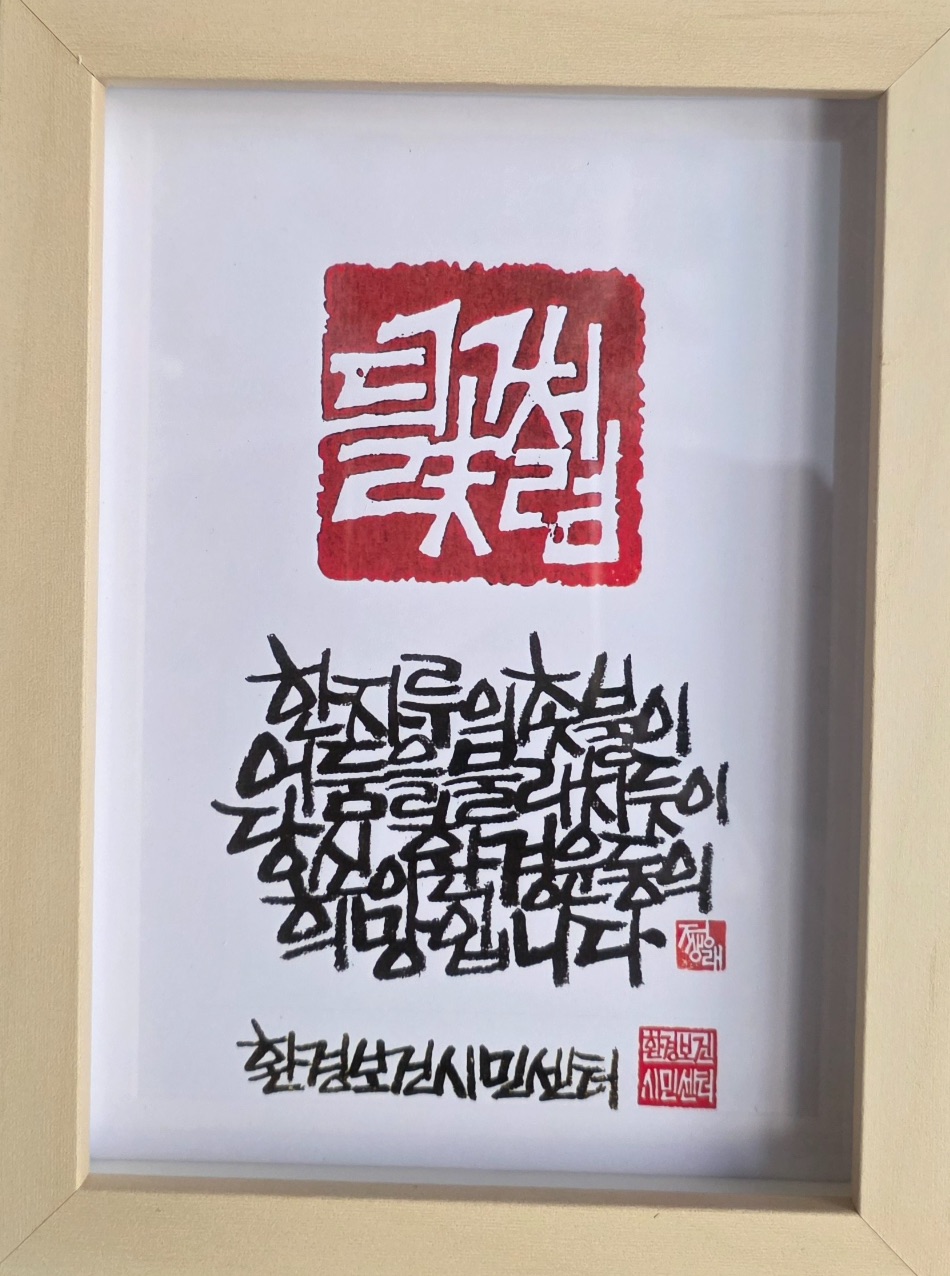 한 자루의 촛불이
어둠을 물리치듯이
당신이 환경운동의
희망입니다
환경보건시민센터
환경보건
시민센터